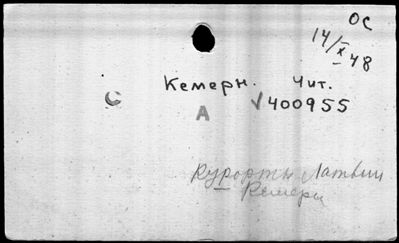 ОС
14/X 48
Кемерн. Чит.
С А √400955
Курорты Латвии
Кемери